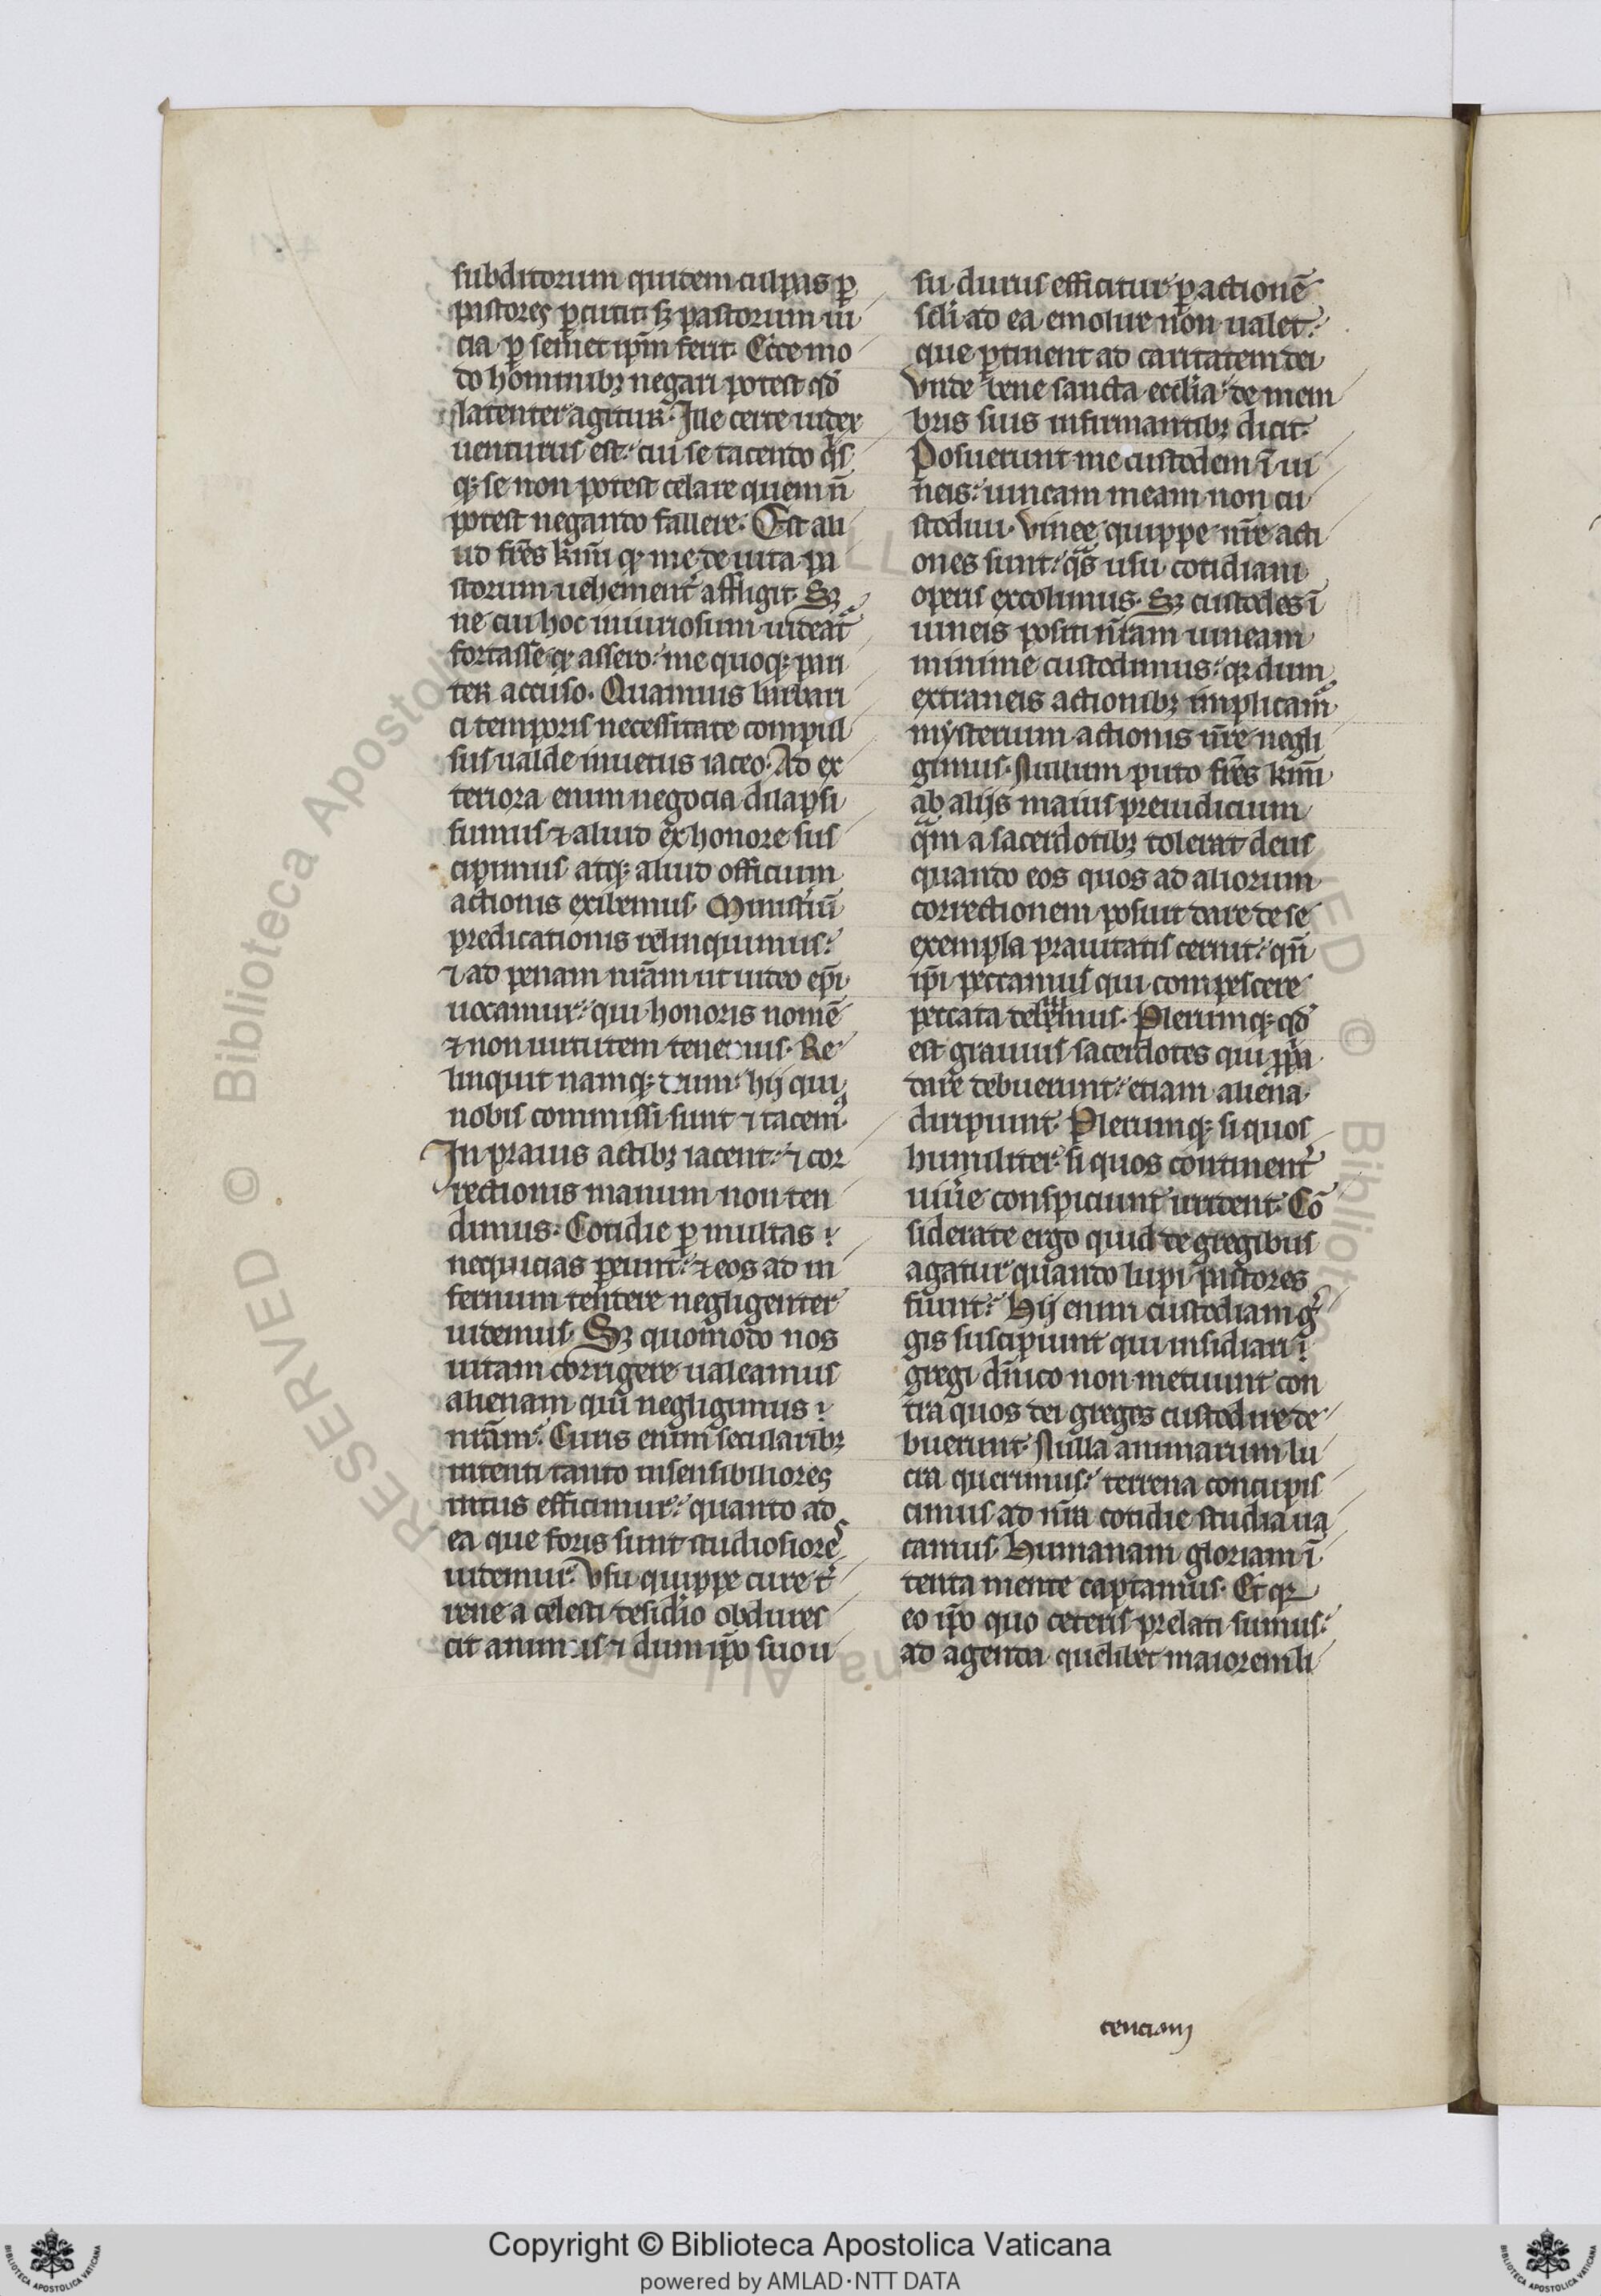 subditorum quidem culpas ꝑ
pastores ꝑcutit: sꝫ pastorum ui
cia ꝑ semet ip̄m ferit. Ecce mo
do hominibꝫ negari potest qd̄
latenter agitur. Ille certe iudex
uenturus est: cui se tacendo q̄s
qꝫ se non potest celare quem n̄
potest negando fallere. Est ali
ud fr̄es kn̄i qꝫ me de uita pa
storum uehement̓ affligit. Sꝫ
ne cui hoc iniuriosum uideat᷑
fortasse qꝫ assero: me quoqꝫ pari
ter accuso. Quamuis barbari
ci temporis necessitate compul
sus ualde inuetus iaceo. Ad ex
teriora enim negocia dilapsi
sumus ⁊ aliud ex honore sus
cipimus atqꝫ aliud officium
actionis exibemus. Ministiū
predicationis relinquimus:
⁊ ad penam nr̄am ut uideo ep̄i
uocamur: qui honoris nomē
⁊ non uirtutem tenemus. Re
linquit namqꝫ deum: hij qui
nobis commissi sunt ⁊ tacemꝰ.
In prauis actibꝫ iacent: ⁊ cor
rectionis manum non ten
dimus: Cotidie ꝑ multas
nequicias ꝑeunt: ⁊ eos ad in
fernum tendere negligenter
uidemus. Sꝫ quomodo nos
uitam corrigere ualeamus
alienam qui negligimus
nr̄am: Curis enim secularibꝫ
intenti tanto insensibiliores
intus efficimur: quanto ad
ea que foris sunt studiosiores
uidemur. Vsu quippe cure t̓
rene a celesti desidio obdures
cit animus ⁊ dum ip̄o suo u
su durus efficitur ꝑ actionē
sc̄li ad ea emolire non ualet:
que ꝑtinent ad caritatem dei
Vnde bene sancta eccl̄ia: de mem
bris suis infirmantibꝫ dicit.
Posuerunt me custodem ī ui
neis: uineam meam non cu
stodiui. Vinee quippe nr̄e acti
ones sunt: q̄s usu cotidiani
operis excolimus. Sꝫ custodes ī
uineis positi nr̄am uineam
minime custodimus: qꝫ dum
extraneis actionibꝫ implicam᷑
mysterium actionis nr̄e negli
gimus. Nullum puto fr̄es kn̄i
ab alijs maius preiudicium
q̄m a sacerdotibꝫ tolerat deus
quando eos quos ad aliorum
correctionem posuit dare de se
exempla prauitatis cernit: qn̄
ip̄i peccamus qui compescere
peccata debemus. Plerumqꝫ qd̄
est grauius sacerdotes qui ꝓp̄a
dare debuerunt: etiam aliena
diripiunt. Plerumqꝫ si quos
humiliter: si quos continent̓
uiu̓e conspiciunt irrident. Cō
siderate ergo quid de gregibus
agatur quando lupi pastores
fiunt: Hij enim custodiam gͥ
gis suscipiunt qui insidiari
gregi dn̄ico non metuunt con
tra quos dei greges custodire de
buerunt. Nulla animarum lu
cra querimus: terrena concupis
cimus ad nr̄a cotidie studia ua
camus. Humanam gloriam ī
tenta mente captamus. Et qꝫ
eo ip̄o quo ceteris prelati sumus:
ad agenda quelibet maiorem li
tenciam
Copyright © Biblioteca Apostolica Vaticana
powered by AMLAD·NTT DATA